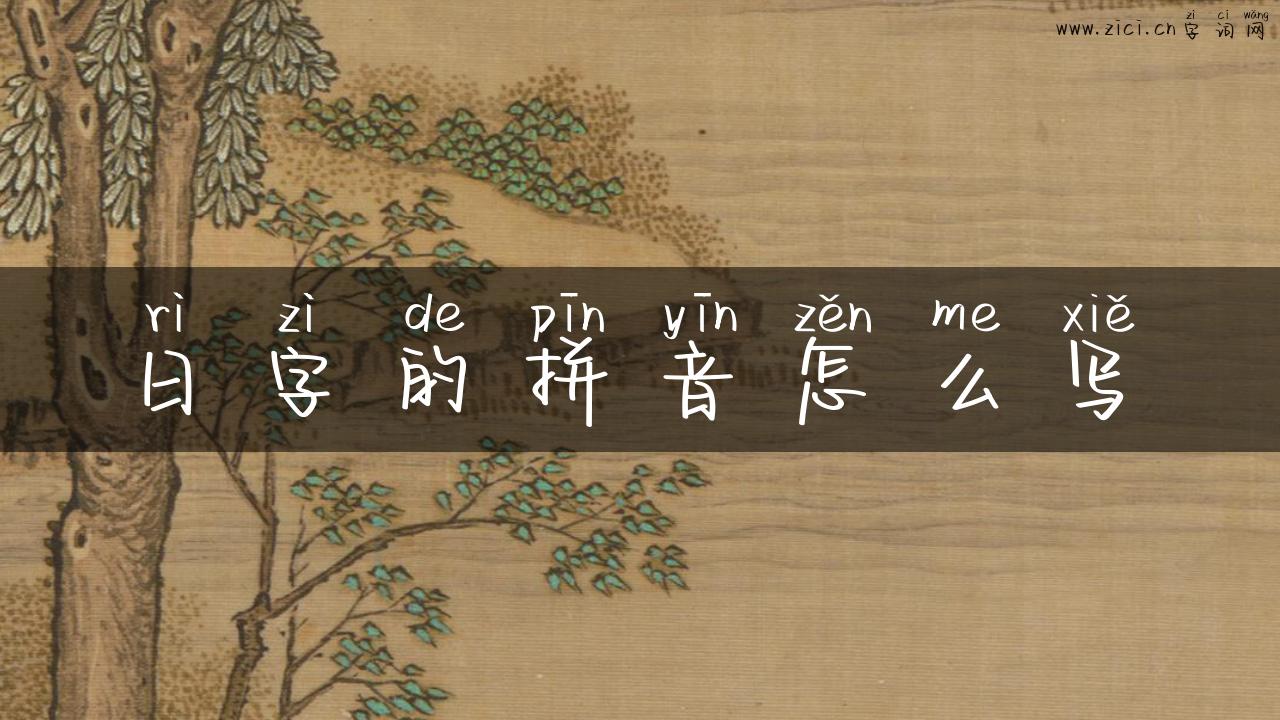 zì cí wǎng
www.zici.cn 字词网
rì zì de pīn yīn zěn me xiě
日字的拼音怎么写